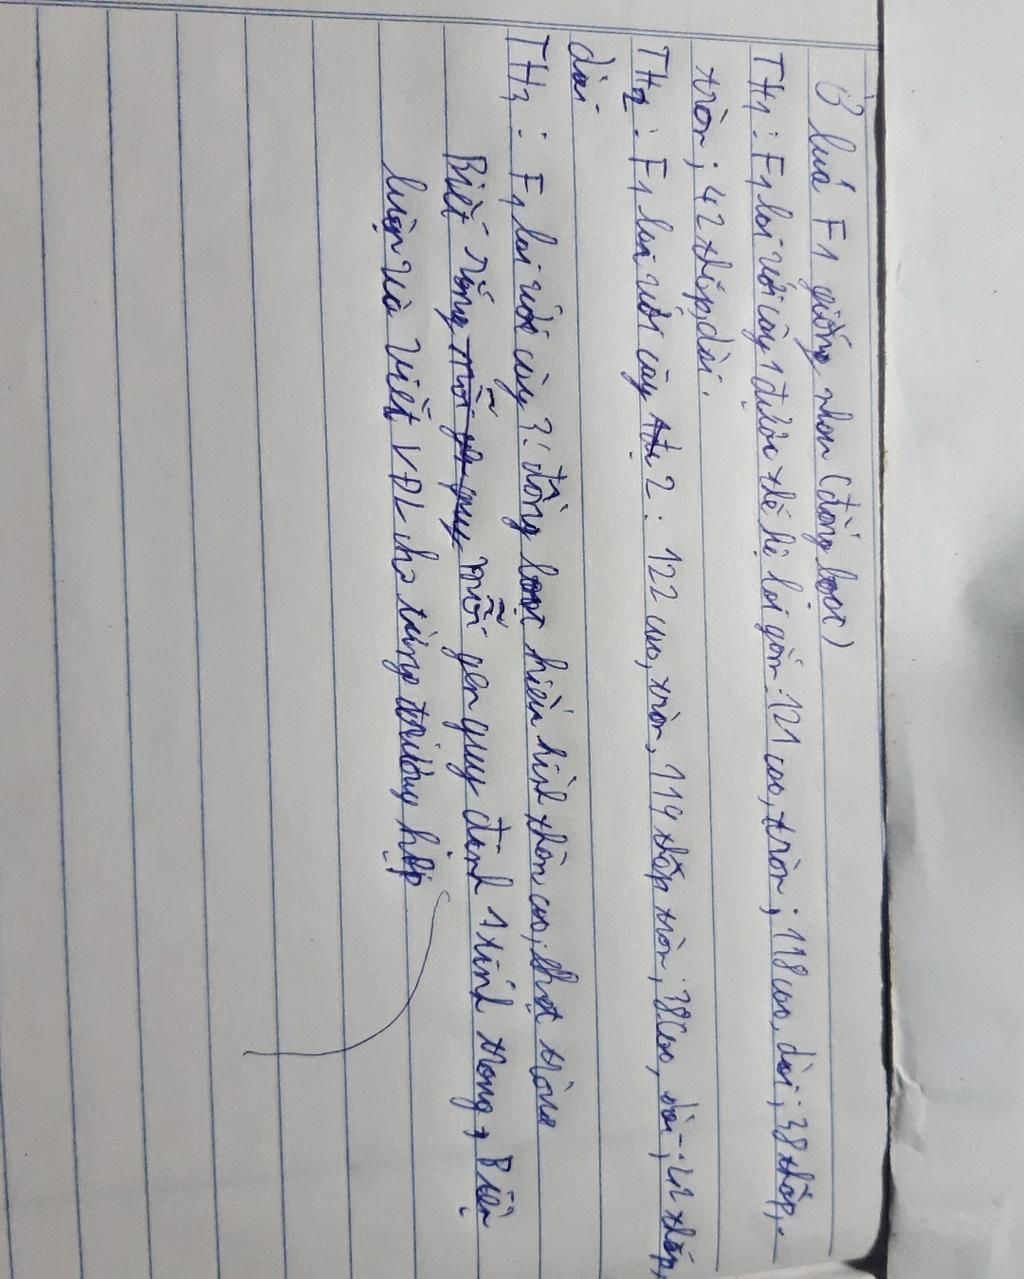 Ở lúa F1 giống nhau (đồng loạt)
TH1: F1 lai với cây 1 được thế hệ lai gồm: 121 cao, tròn; 118 cao, dài; 38 thấp,
tròn; 42 thấp, dài.
TH2: F1 lai với cây 2: 122 cao, tròn, 119 thấp tròn; 38 cao, dài; 42 thấp,
dài
TH3: F1 lai với cây 3: đồng loạt kiểu hình thân cao, hạt tròn
Biết rằng mỗi gen quy định 1 tính trạng, Biện
luận và viết SĐL cho từng trường hợp